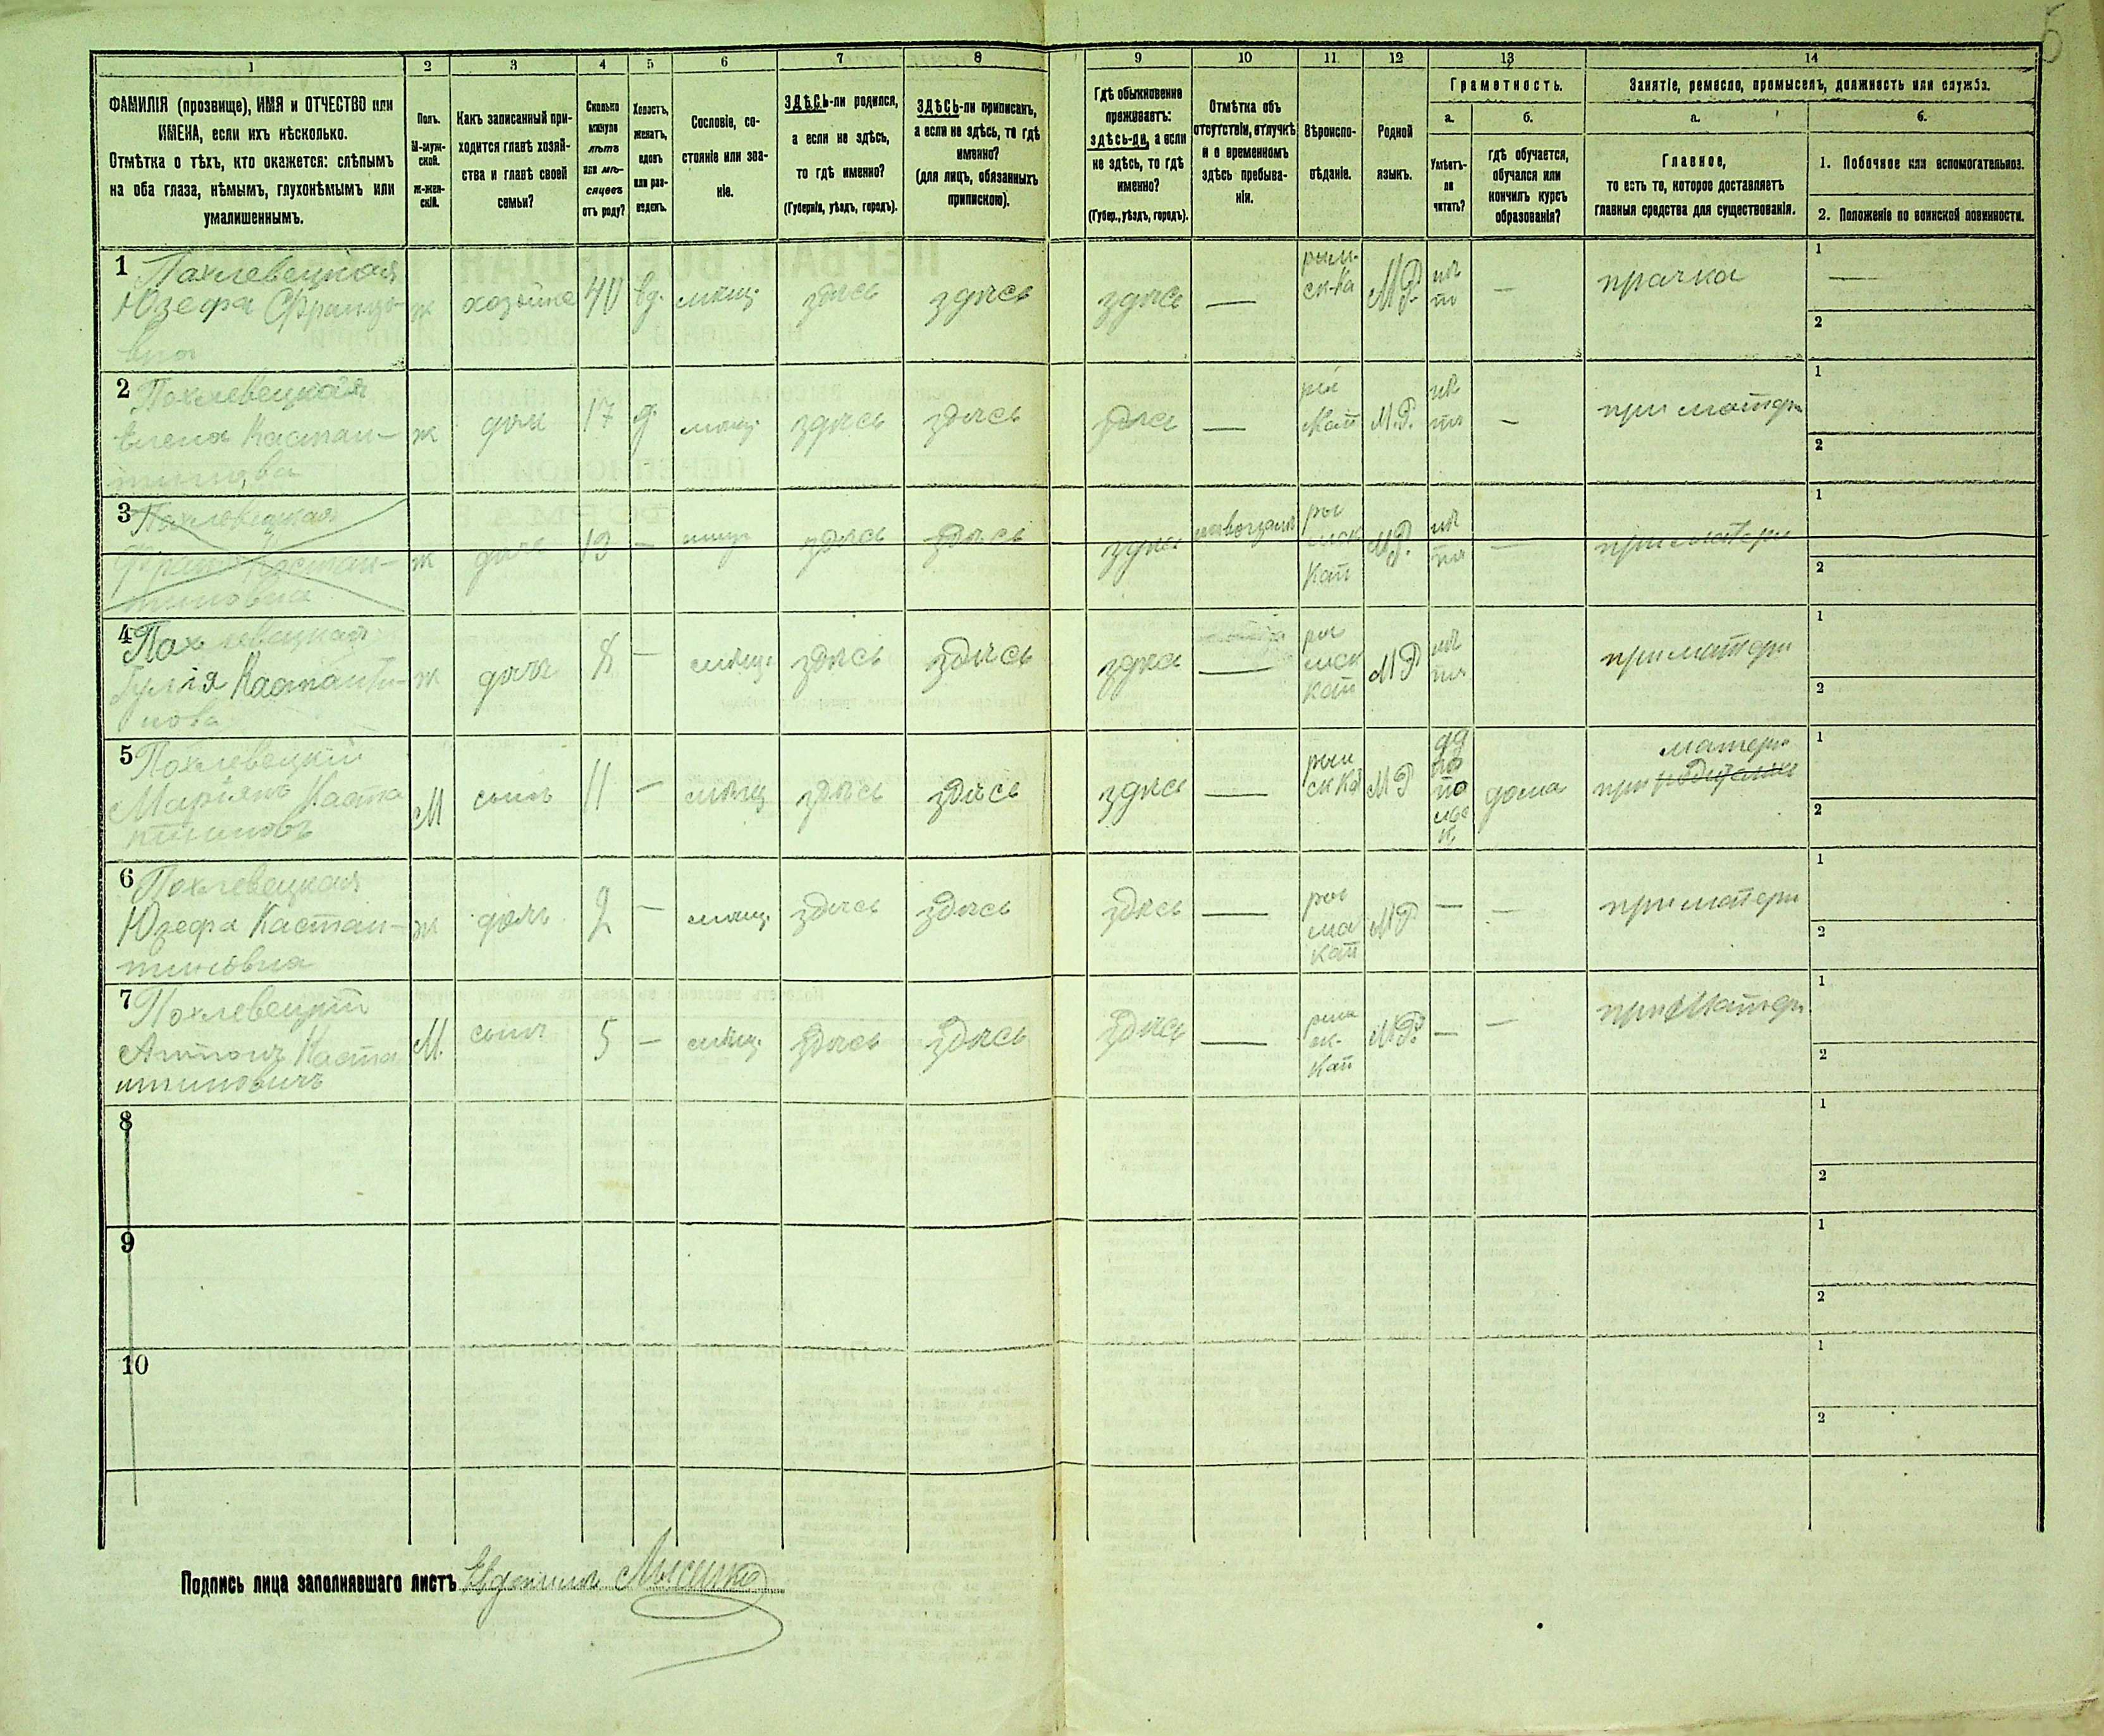 1 2 3 4 5 6 7 8 9 10 11 12 13 14
ФАМИЛІЯ (прозвище), ИМЯ и ОТЧЕСТВО или
ИМЕНА, если ихъ нѣсколько.
Отмѣтка о тѣхъ, кто окажется: слѣпымъ
на оба глаза, нѣмымъ, глухонѣмымъ или
умалишеннымъ.
Полъ.
М-муж-
ской.
ж-жен-
скій.
Какъ записанный при-
ходится главѣ хозяй-
ства и главѣ своей
семьи?
Сколько
минуло
лѣтъ
или мѣ-
сяцевъ
отъ роду?
Холостъ,
женатъ,
вдовъ
или раз-
веденъ.
Сословіе, со-
стояніе или зва-
ніе.
ЗДѢСЬ-ли родился,
а если не здѣсь,
то гдѣ именно?
(Губернія, уѣздъ, городъ).
ЗДѢСЬ-ли приписанъ,
а если не здѣсь, то гдѣ
именно?
(для лицъ, обязанныхъ
припискою).
Гдѣ обыкновенно
проживаетъ:
здѣсь-ли, а если
не здѣсь, то гдѣ
именно?
(Губер., уѣздъ, городъ).
Отмѣтка объ
отсутствіи, отлучкѣ
и о временномъ
здѣсь пребыва-
ніи.
Вѣроиспо-
вѣданіе.
Родной
языкъ.
Грамотность.
а.
Умѣетъ-
ли
читать?
б.
гдѣ обучается,
обучался или
кончилъ курсъ
образованія?
Занятіе, ремесло, промыселъ, должность или служба.
а.
Главное,
то есть то, которое доставляетъ
главныя средства для существованія.
б.
1. Побочное или вспомогательное.
2. Положеніе по воинской повинности.
1 Похлевецкая
Юзефа Францо-
вна
ж хозяйка 40 вд. мѣщ. здѣсь здѣсь здѣсь — рим-
ск-ка М.Р. нѣ
тъ — прачка 1 —
2
2 Похлевецкая
Елена Кастан-
тинова
ж дочь 17 д. мѣщ. здѣсь здѣсь здѣсь — Кат М.Р. нѣ
тъ — при матери 1
2
3 Похлевецкая
Кастан-
тиновна
ж дочь 13 — здѣсь здѣсь здѣсь ры
мск
Кат М.Р. нѣ
тъ — при матери 1
2
4 Похлевецкая
Юлія Кастанти-
нова
ж дочь 8 — мѣщ. здѣсь здѣсь здѣсь — ри
мск
кат М Р нѣ
тъ при матери 1
2
5 Похлевецкій
Маріянъ Каста
нтиновъ
М сынъ 11 — мѣщ здѣсь здѣсь здѣсь — рим
ск ка М Р да
по
по
льс
к. дома матери
при родителяхъ 1
2
6 Похлевецкая
Юзефа Кастан-
тиновна
ж дочь 2 — мѣщ. здѣсь здѣсь здѣсь — ри
мс
кат М Р — — при матери 1
2
7 Похлевецкій
Антонъ Каста
нтиновичъ
М. сынъ 5 — мѣщ. здѣсь здѣсь здѣсь — рим
ск-
кат М.Р. — — при Матери 1
2
8 1
2
9 1
2
10 1
2
Подпись лица заполнявшаго листъ